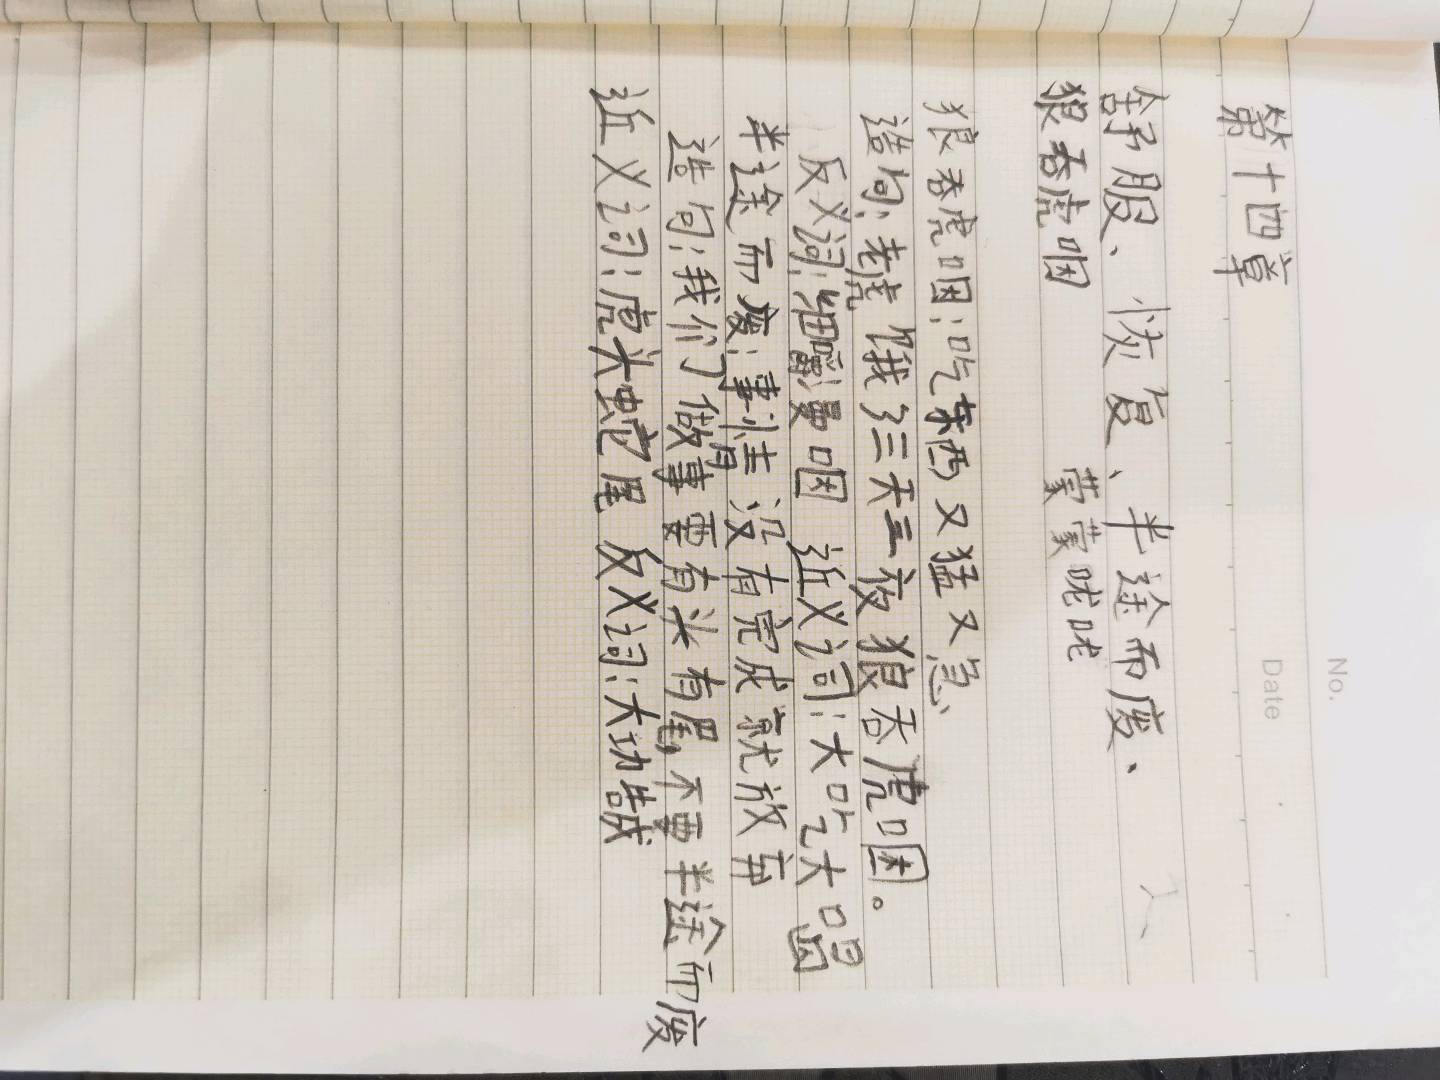 No.
Date
第十四章
舒服、恢复、半途而废、
狼吞虎咽 蒙蒙咙咙
狼吞虎咽：吃东西又猛又急、
造句：老虎饿了三天三夜狼吞虎咽。
反义词：细嚼漫咽 近义词：大吃大喝
半途而废：事情没有完成就放弃
造句：我们做事要有头有尾，不要半途而废
近义词：虎头蛇尾 反义词：大功告成